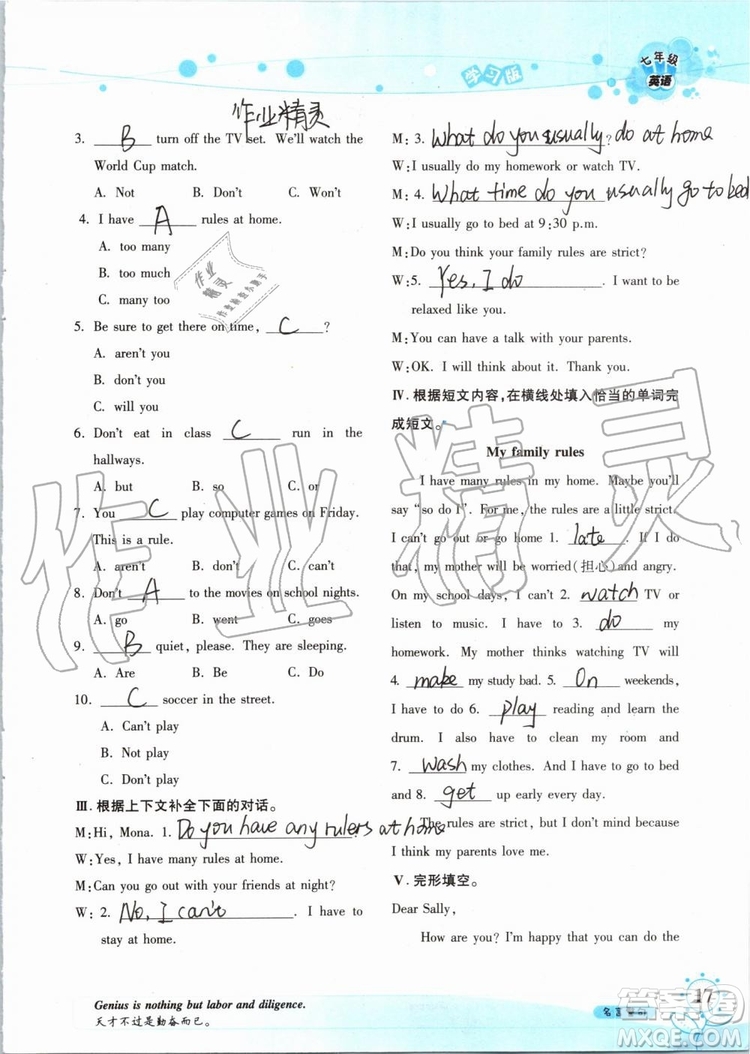 学习版
七年级
英语
作业精灵
3. B turn off the TV set. We'll watch the
World Cup match.
A. Not B. Don't C. Won't
4. I have A rules at home.
A. too many
B. too much
C. many too
5. Be sure to get there on time, C ?
A. aren't you
B. don't you
C. will you
6. Don't eat in class C run in the
hallways.
A. but B. so C. or
7. You C play computer games on Friday.
This is a rule.
A. aren't B. don't C. can't
8. Don't A to the movies on school nights.
A. go B. went C. goes
9. B quiet, please. They are sleeping.
A. Are B. Be C. Do
10. C soccer in the street.
A. Can't play
B. Not play
C. Don't play
Ⅲ. 根据上下文补全下面的对话。
M: Hi, Mona. 1. Do you have any rulers at home
W: Yes, I have many rules at home.
M: Can you go out with your friends at night?
W: 2. No, I can't . I have to
stay at home.
M: 3. What do you usually do at home ?
W: I usually do my homework or watch TV.
M: 4. What time do you usually go to bed
W: I usually go to bed at 9:30 p.m.
M: Do you think your family rules are strict?
W: 5. Yes, I do . I want to be
relaxed like you.
M: You can have a talk with your parents.
W: OK. I will think about it. Thank you.
Ⅳ. 根据短文内容,在横线处填入恰当的单词完
成短文。
My family rules
I have many rules in my home. Maybe you'll
say "so do I". For me, the rules are a little strict.
I can't go out or go home 1. late . If I do
that, my mother will be worried(担心) and angry.
On my school days, I can't 2. watch TV or
listen to music. I have to 3. do my
homework. My mother thinks watching TV will
4. make my study bad. 5. On weekends,
I have to do 6. play reading and learn the
drum. I also have to clean my room and
7. wash my clothes. And I have to go to bed
and 8. get up early every day.
The rules are strict, but I don't mind because
I think my parents love me.
Ⅴ. 完形填空。
Dear Sally,
How are you? I'm happy that you can do the
Genius is nothing but labor and diligence.
天才不过是勤奋而已。
17
作业精灵
答案圈
MXQE.COM